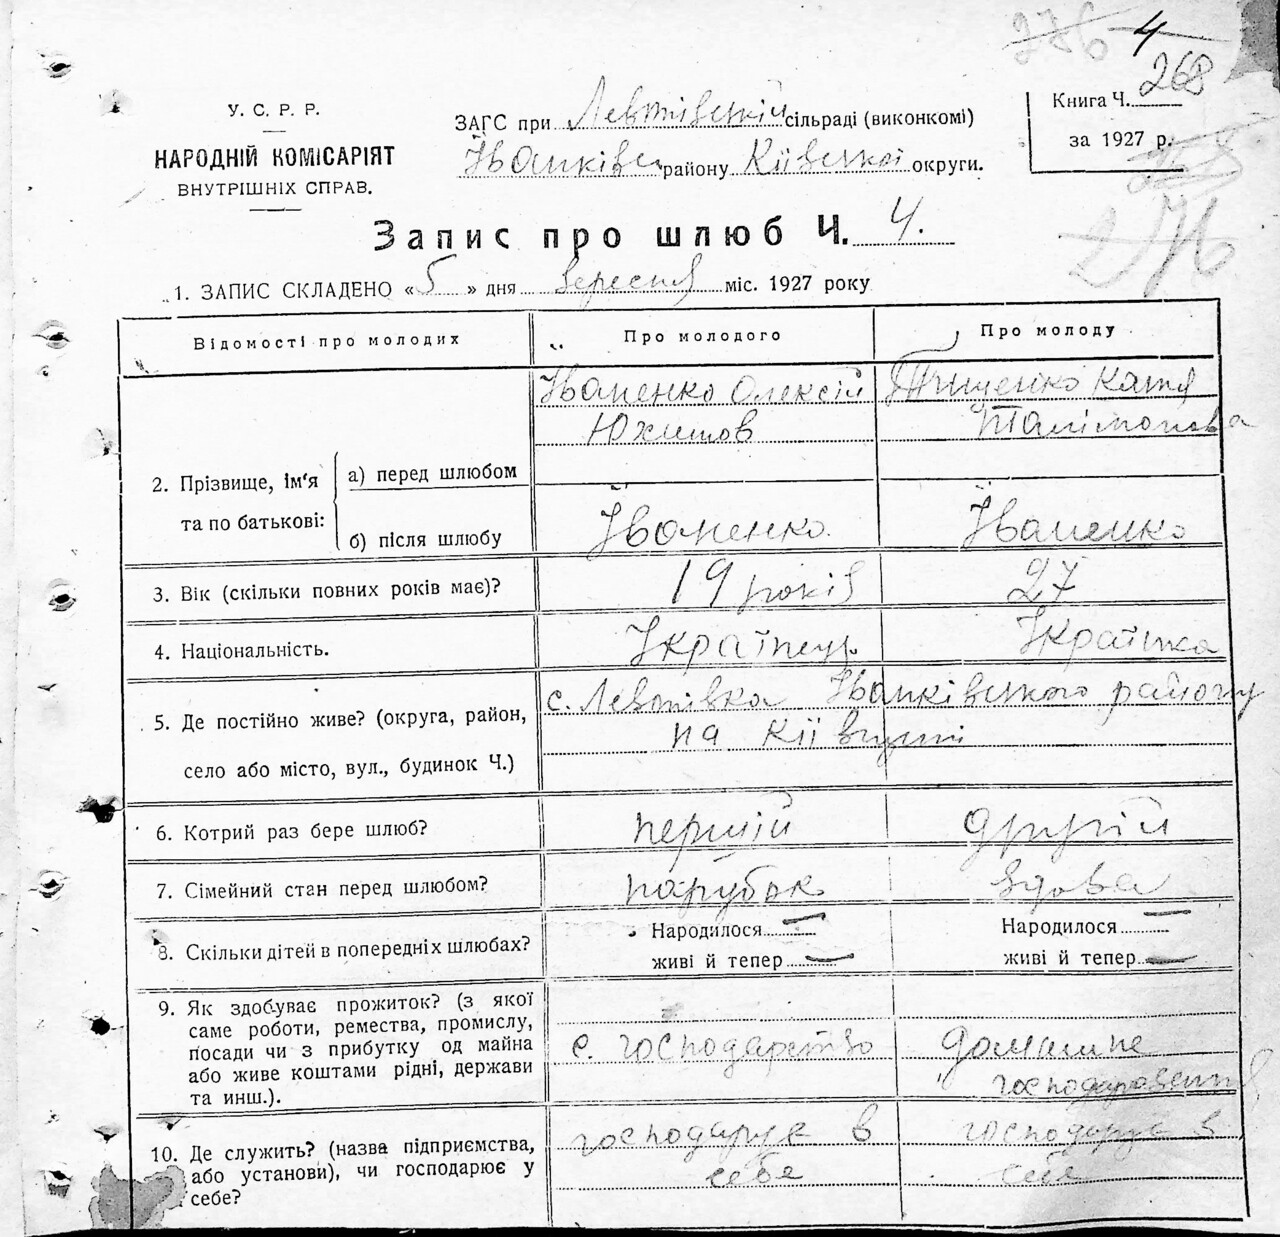 276 4
268
У. С. Р. Р.
НАРОДНІЙ КОМІСАРІЯТ
ВНУТРІШНІХ СПРАВ.
ЗАГС при Левтівській сільраді (виконкомі)
Їванківс району Київської округи.
Книга Ч.
за 1927 р.
276
Запис про шлюб Ч. 4.
1. ЗАПИС СКЛАДЕНО «5» дня вересня міс. 1927 року
Відомості про молодих
Про молодого
Про молоду
2. Прізвище, ім'я та по батькові:
а) перед шлюбом
Їваненко Олексій
Юхимов
Тищенко Катя
б) після шлюбу
Їваненко
Їваненко
3. Вік (скільки повних років має)?
19 років
27
4. Національність.
Українець
Українка
5. Де постійно живе? (округа, район,
село або місто, вул., будинок Ч.)
с. Левтівка Їванківського району
на Київщині
6. Котрий раз бере шлюб?
першій
другій
7. Сімейний стан перед шлюбом?
парубок
вдова
8. Скільки дітей в попередніх шлюбах?
Народилося —
живі й тепер —
Народилося —
живі й тепер —
9. Як здобуває прожиток? (з якої
саме роботи, ремества, промислу,
посади чи з прибутку од майна
або живе коштами рідні, держави
та инш.).
с. господарство
Домашнє
господарювання
10. Де служить? (назва підприємства,
або установи), чи господарює у
себе?
господарує в
себе
господарує в
себе